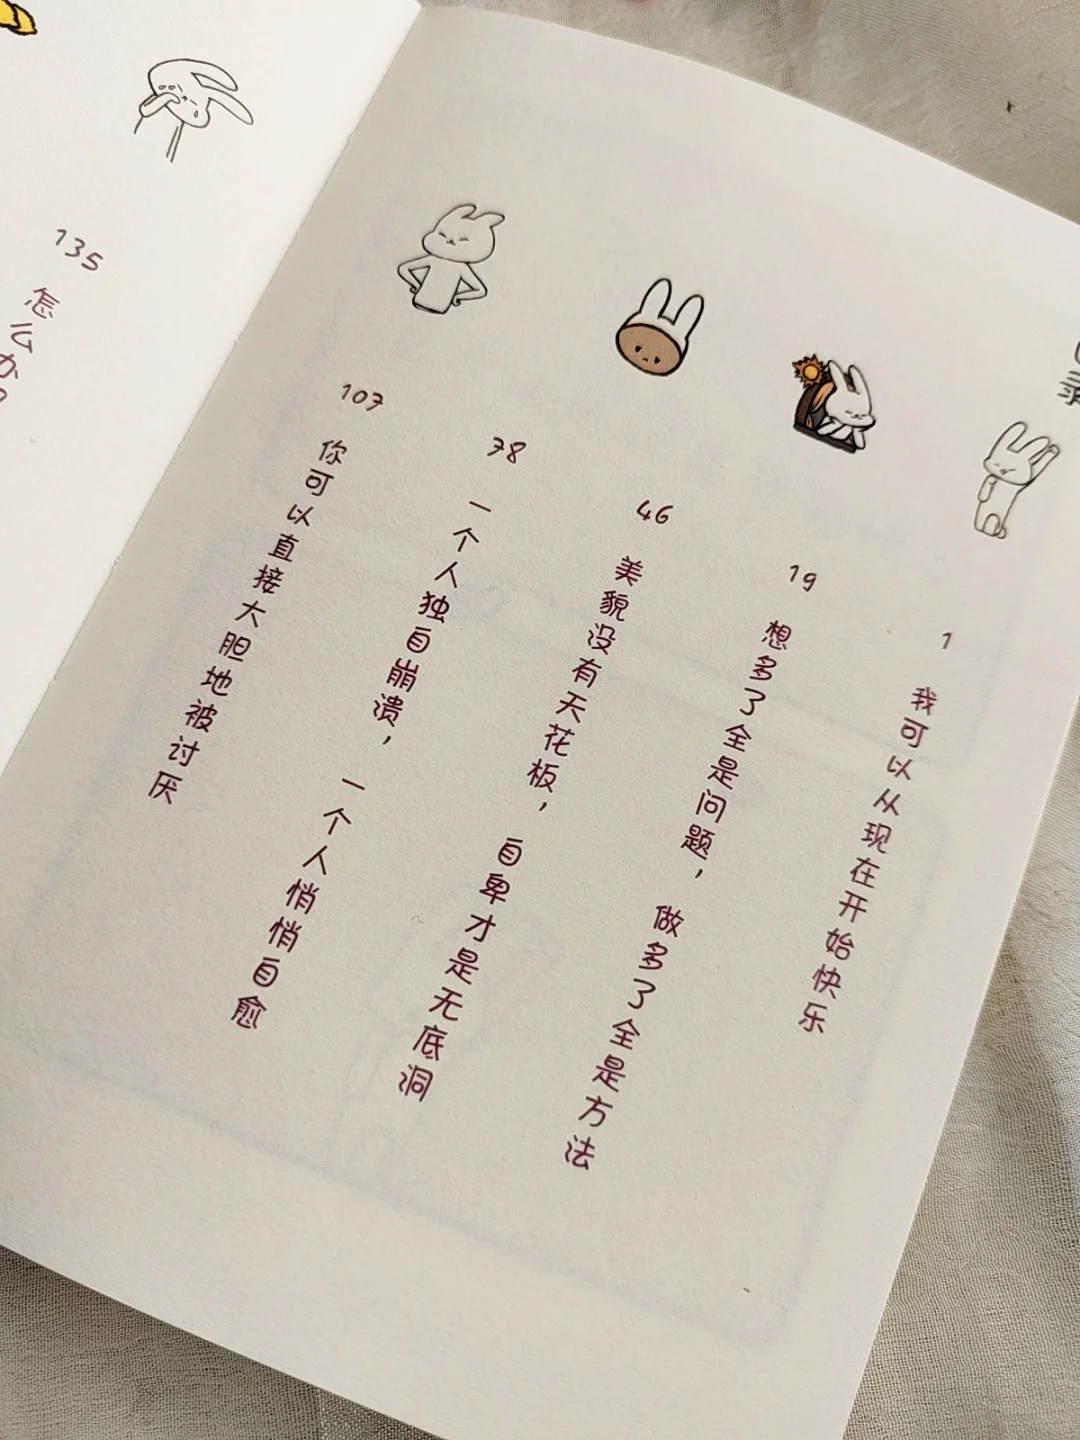 录
1 我可以从现在开始快乐
19 想多了全是问题，做多了全是方法
46 美貌没有天花板，自卑才是无底洞
78 一个人独自崩溃，一个人悄悄自愈
107 你可以直接大胆地被讨厌
135 怎么办?